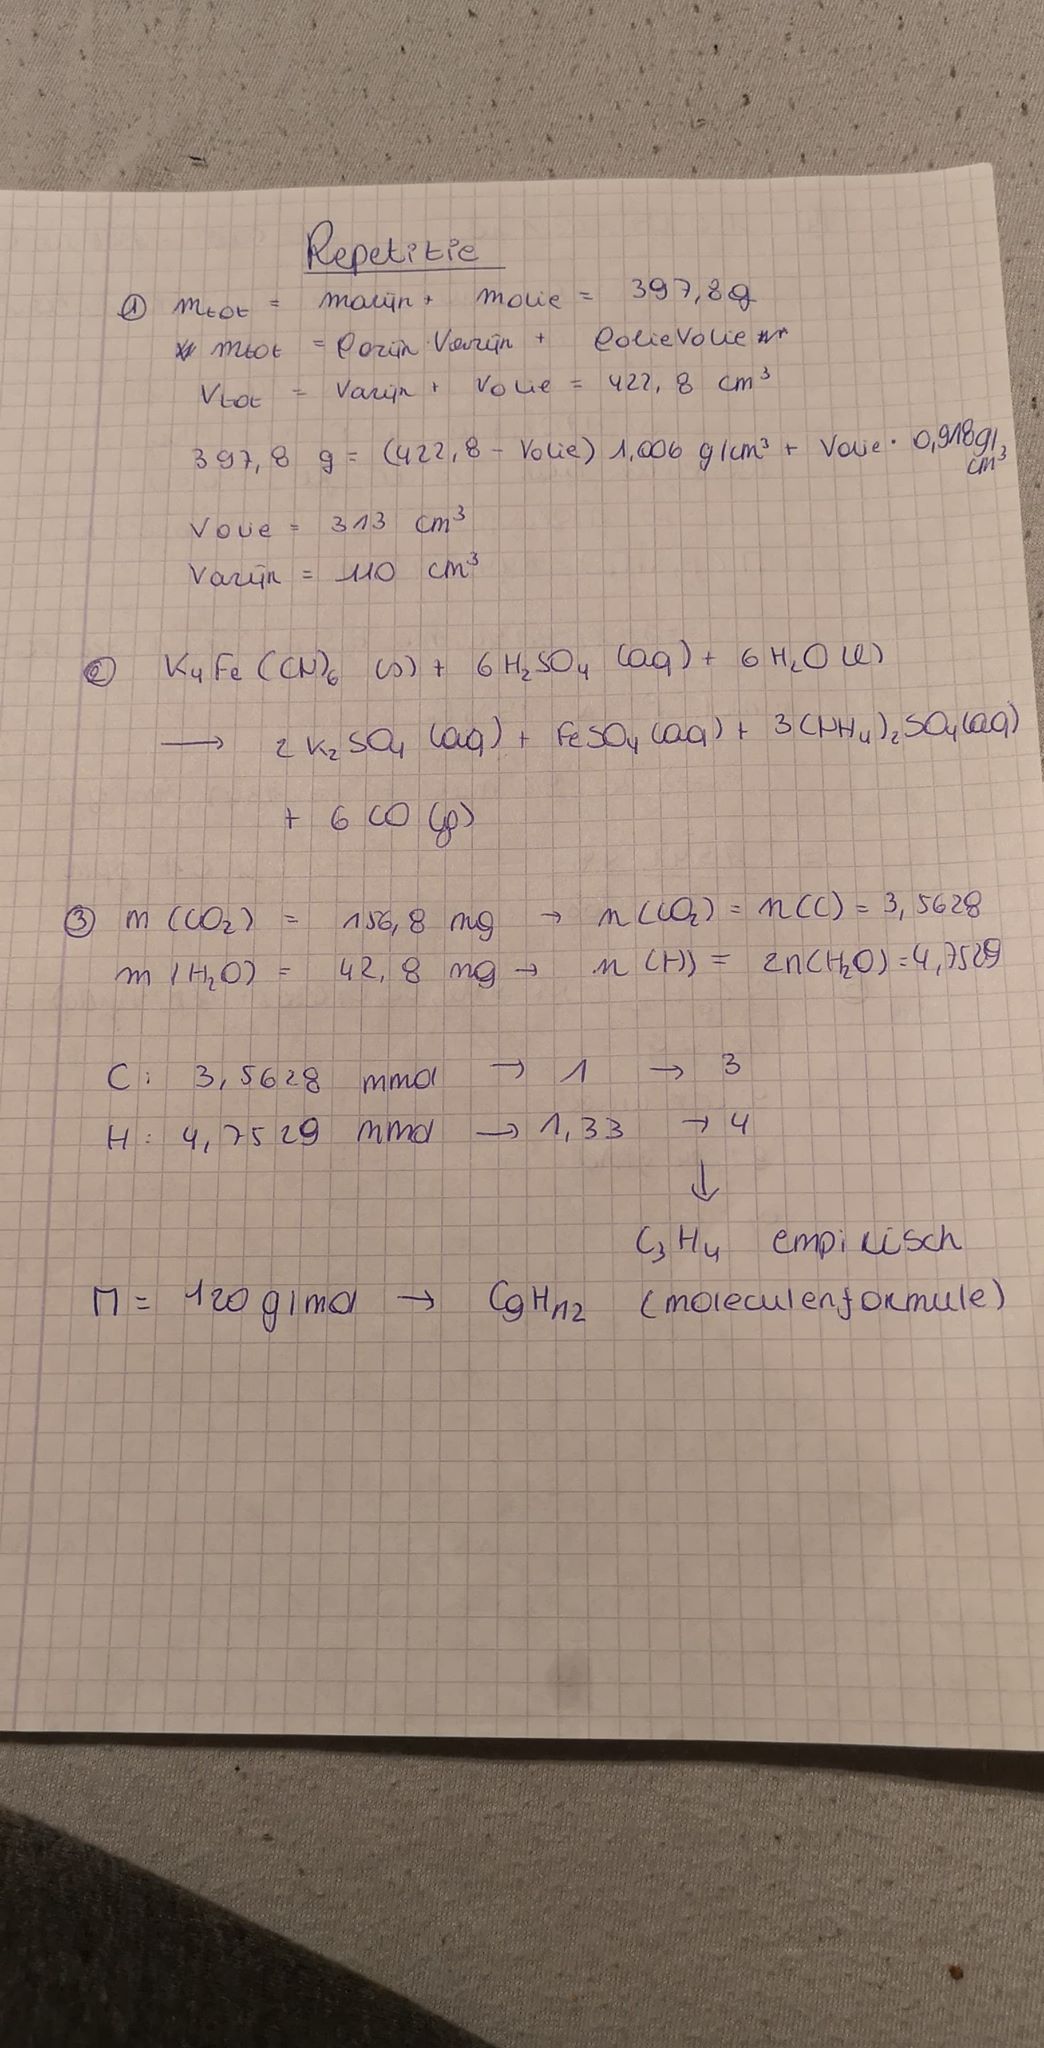 Repetitie
① mtot = mazijn + molie = 397,8g
mtot = ρazijn Vazijn + ρolieVolie
Vtot = Vazijn + Volie = 422,8 cm³
397,8 g = (422,8 - Volie) 1,006 g/cm³ + Volie · 0,918g/cm³
Volie = 313 cm³
Vazijn = 110 cm³
② K₄Fe(CN)₆ (s) + 6H₂SO₄ (aq) + 6H₂O (l)
→ 2K₂SO₄ (aq) + FeSO₄(aq) + 3(NH₄)₂SO₄(aq)
+ 6CO (g)
③ m(CO₂) = 156,8 mg → n(CO₂) = n(C) = 3,5628
m(H₂O) = 42,8 mg → n(H) = 2n(H₂O)=4,7529
C: 3,5628 mmol → 1 → 3
H: 4,7529 mmol → 1,33 → 4
↓
C₃H₄ empirisch
M = 120 g/mol → C₉H₁₂ (moleculenformule)